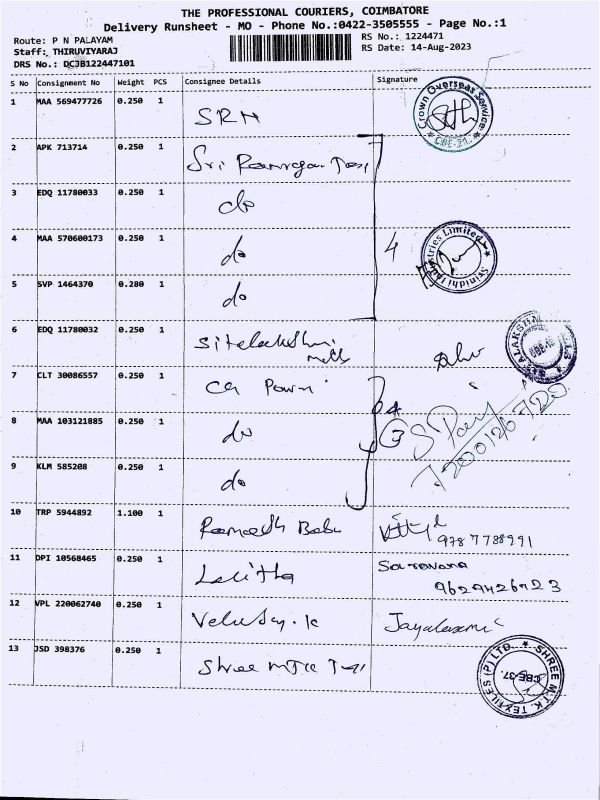 THE PROFESSIONAL COURIERS, COIMBATORE
Delivery Runsheet - MO - Phone No.:0422-3505555 - Page No.:1
Route: P N PALAYAM
RS No.: 1224471
Staff: THIRUVIYARAJ
RS Date: 14-Aug-2023
DRS No.: DCJB122447101
S No Consignment No Weight PCS Consignee Details Signature
1 MAA 569477726 0.250 1 SRN Crown Overseas Service CBE-37.
2 APK 713714 0.250 1 Sri
3 EDQ 11780033 0.250 1 do
4 MAA 570600173 0.250 1 do 4 Srinidhi Industries Limited
5 SVP 1464370 0.280 1 do
6 EDQ 11780032 0.250 1 Sitelakshmi
mills
7 CLT 30086557 0.250 1 CG
8 MAA 103121885 0.250 1 do 3
9 KLM 585208 0.250 1 do
10 TRP 5944892 1.100 1 Rameesh Babu 9787788991
11 DPI 10568465 0.250 1 Lalitha Saravana
9629426923
12 VPL 220062740 0.250 1 Velusay.k Jayalaxmi
13 JSD 398376 0.250 1 Shree MTK Tex SHREE M.T.K. TEXTILES (P) LTD. CBE-37.